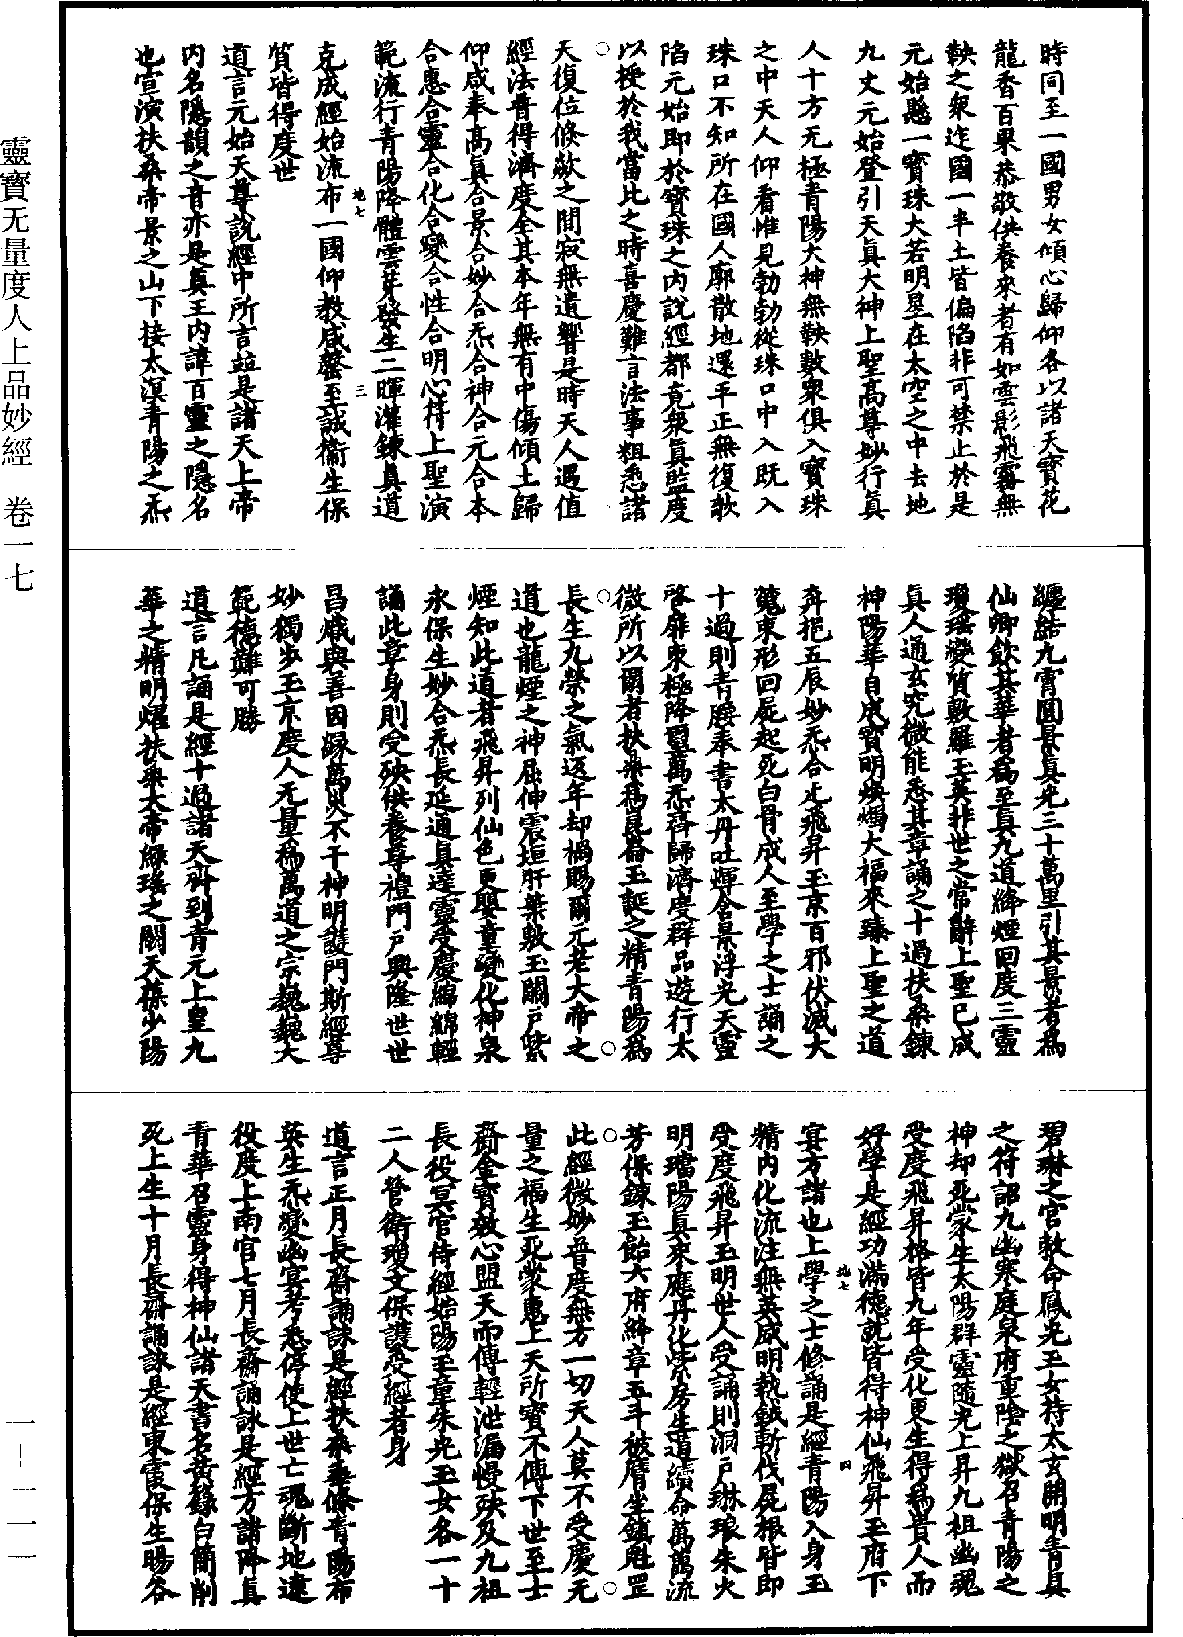 靈寶无量度人上品妙經　卷一七
一－一一一
時同至一國男女傾心歸仰各以諸天寶花
龍香百果恭敬供養來者有如雲影飛霧無
鞅之衆迮國一半土皆偏陷非可禁止於是
元始懸一寶珠大若明星在太空之中去地
九丈元始登引天真大神上聖高尊妙行真
人十方无極青陽大神無鞅數衆俱入寶珠
之中天人仰看惟見勃勃從珠口中入既入
珠口不知所在國人廓散地還平正無復欹
陷元始即於寶珠之內說經都竟衆真監度
以授於我當此之時喜慶難言法事粗悉諸
天復位倏歘之間寂無遺響是時天人遇值
經法普得濟度全其本年無有中傷傾土歸
仰咸奉高真合景合妙合炁合神合元合本
合惠合靈合化合變合性合明心符上聖演
範流行青陽降體雲芽發生二暉灌鍊真道
克成經始流布一國仰教咸罄至誠衞生保
質皆得度世
道言元始天尊說經中所言並是諸天上帝
內名隱韻之音亦是真王內諱百靈之隱名
也宣演扶桑帝景之山下接太溟青陽之炁
地七
三
纏結九霄圓景真光三十萬里引其景者爲
仙卿飲其華者爲至真九道絳煙回度三靈
瓊瑶變質敷羅玉英非世之常辭上聖已成
真人通玄究微能悉其章誦之十過扶桑鍊
神陽華自成寶明煥燭大福來臻上聖之道
奔挹五辰妙炁合疋飛昇玉京百邪伏滅大
蒐東形回屍起死白骨成人至學之士誦之
十過則青腰奉書太丹吐煇含景浮光天靈
啓扉東極降璽萬炁齊歸濟度群品遊行太
微所以爾者扶桑爲崑崙玉誕之精青陽爲
長生九榮之氣返年却禍賜爾元老大帝之
道也龍煙之神屈伸震垣肝葉敷玉關戶紫
煙知此道者飛昇列仙色更嬰童變化神泉
永保生妙合炁長延通真達靈受慶綿綿輕
誦此章身則受殃供養尊禮門戶興隆世世
昌熾與善因緣萬災不干神明護門斯經尊
妙獨步玉京度人无量爲萬道之宗巍巍大
範德難可勝
道言凡誦是經十過諸天齊到青元上皇九
華之精明燿扶桑大帝綠瑤之闕天葆少陽
碧琳之官敕命鳳光玉女持太玄開明青真
之符詔九幽寒庭泉府重陰之獄召青陽之
神却死蒙生太陽群靈隨光上昇九祖幽魂
受度飛昇格皆九年受化更生得爲貴人而
好學是經功滿德就皆得神仙飛昇玉府下
宴方諸也上學之士修誦是經青陽入身玉
精內化流注無英威明執鉞斬伐屍根皆即
受度飛昇玉明世人受誦則洞戶琳琅朱火
明璫陽真來應丹化紫房生道續命萬萬流
芳保鍊玉飴六府絳章五斗被膺坐鎮魁罡
此經微妙普度無方一切天人莫不受慶无
量之福生死蒙惠上天所寶不傳下世至士
齎金寶效心盟天而傳輕泄漏慢殃及九祖
長役冥官侍經始陽玉童朱光玉女各一十
二人營衛瓊文保護受經者身
道言正月長齋誦詠是經扶桑垂條青陽布
英生炁變幽冥考悉停使上世亡魂斷地逮
役度上南宮七月長齋誦詠是經方諸降真
青華召靈身得神仙諸天書名黃籙白簡削
死上生十月長齋誦詠是經東霞保生暘谷
地七
四